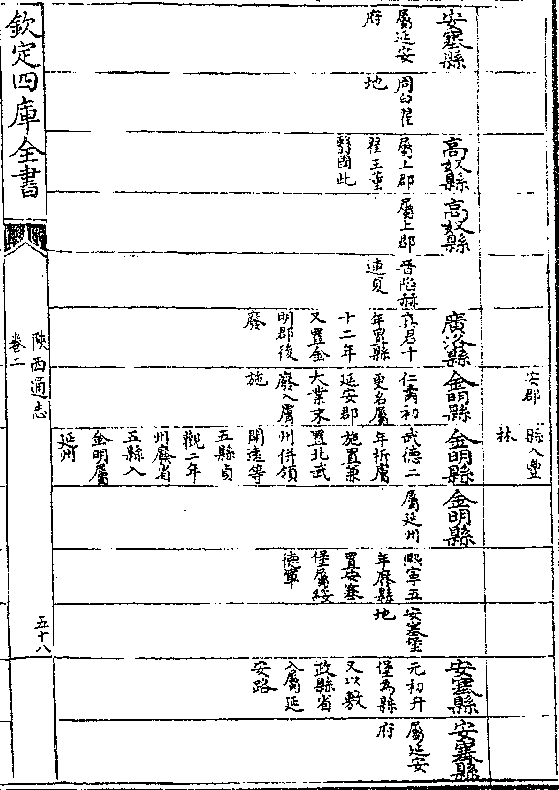 安郡
縣入豐
林
安塞縣
屬延安
府
周白翟
地
高奴縣
屬上郡
翟王董
翳國此
高奴縣
屬上郡
晉陷赫
連夏
廣洛縣
真君十
年置縣
十二年
又置金
明郡後
廢
金明縣
仁壽初
更名屬
延安郡
大業末
廢入膚
施
金明縣
武德二
年析膚
施置兼
置北武
州併領
開遠等
五縣貞
觀二年
州廢省
五縣入
金明屬
延州
金明縣
屬延州
熙寧五
年廢縣
置安塞
堡屬綏
德軍
安塞堡
地
安塞縣
元初升
堡為縣
又以敷
政縣省
入屬延
安路
安塞縣
屬延安
府
欽定四庫全書
陝西通志
卷二
五十八